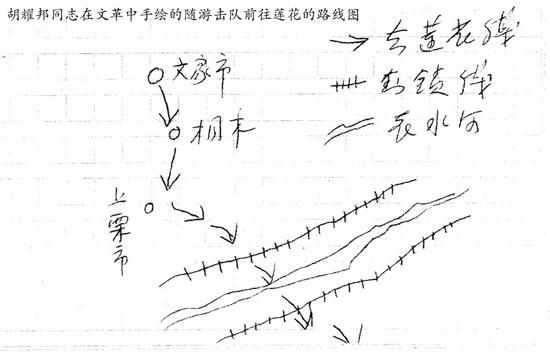 胡耀邦同志在文革中手绘的随游击队前往莲花的路线图
去莲花线
封锁线
袁水河
文家市
桐木
上栗市